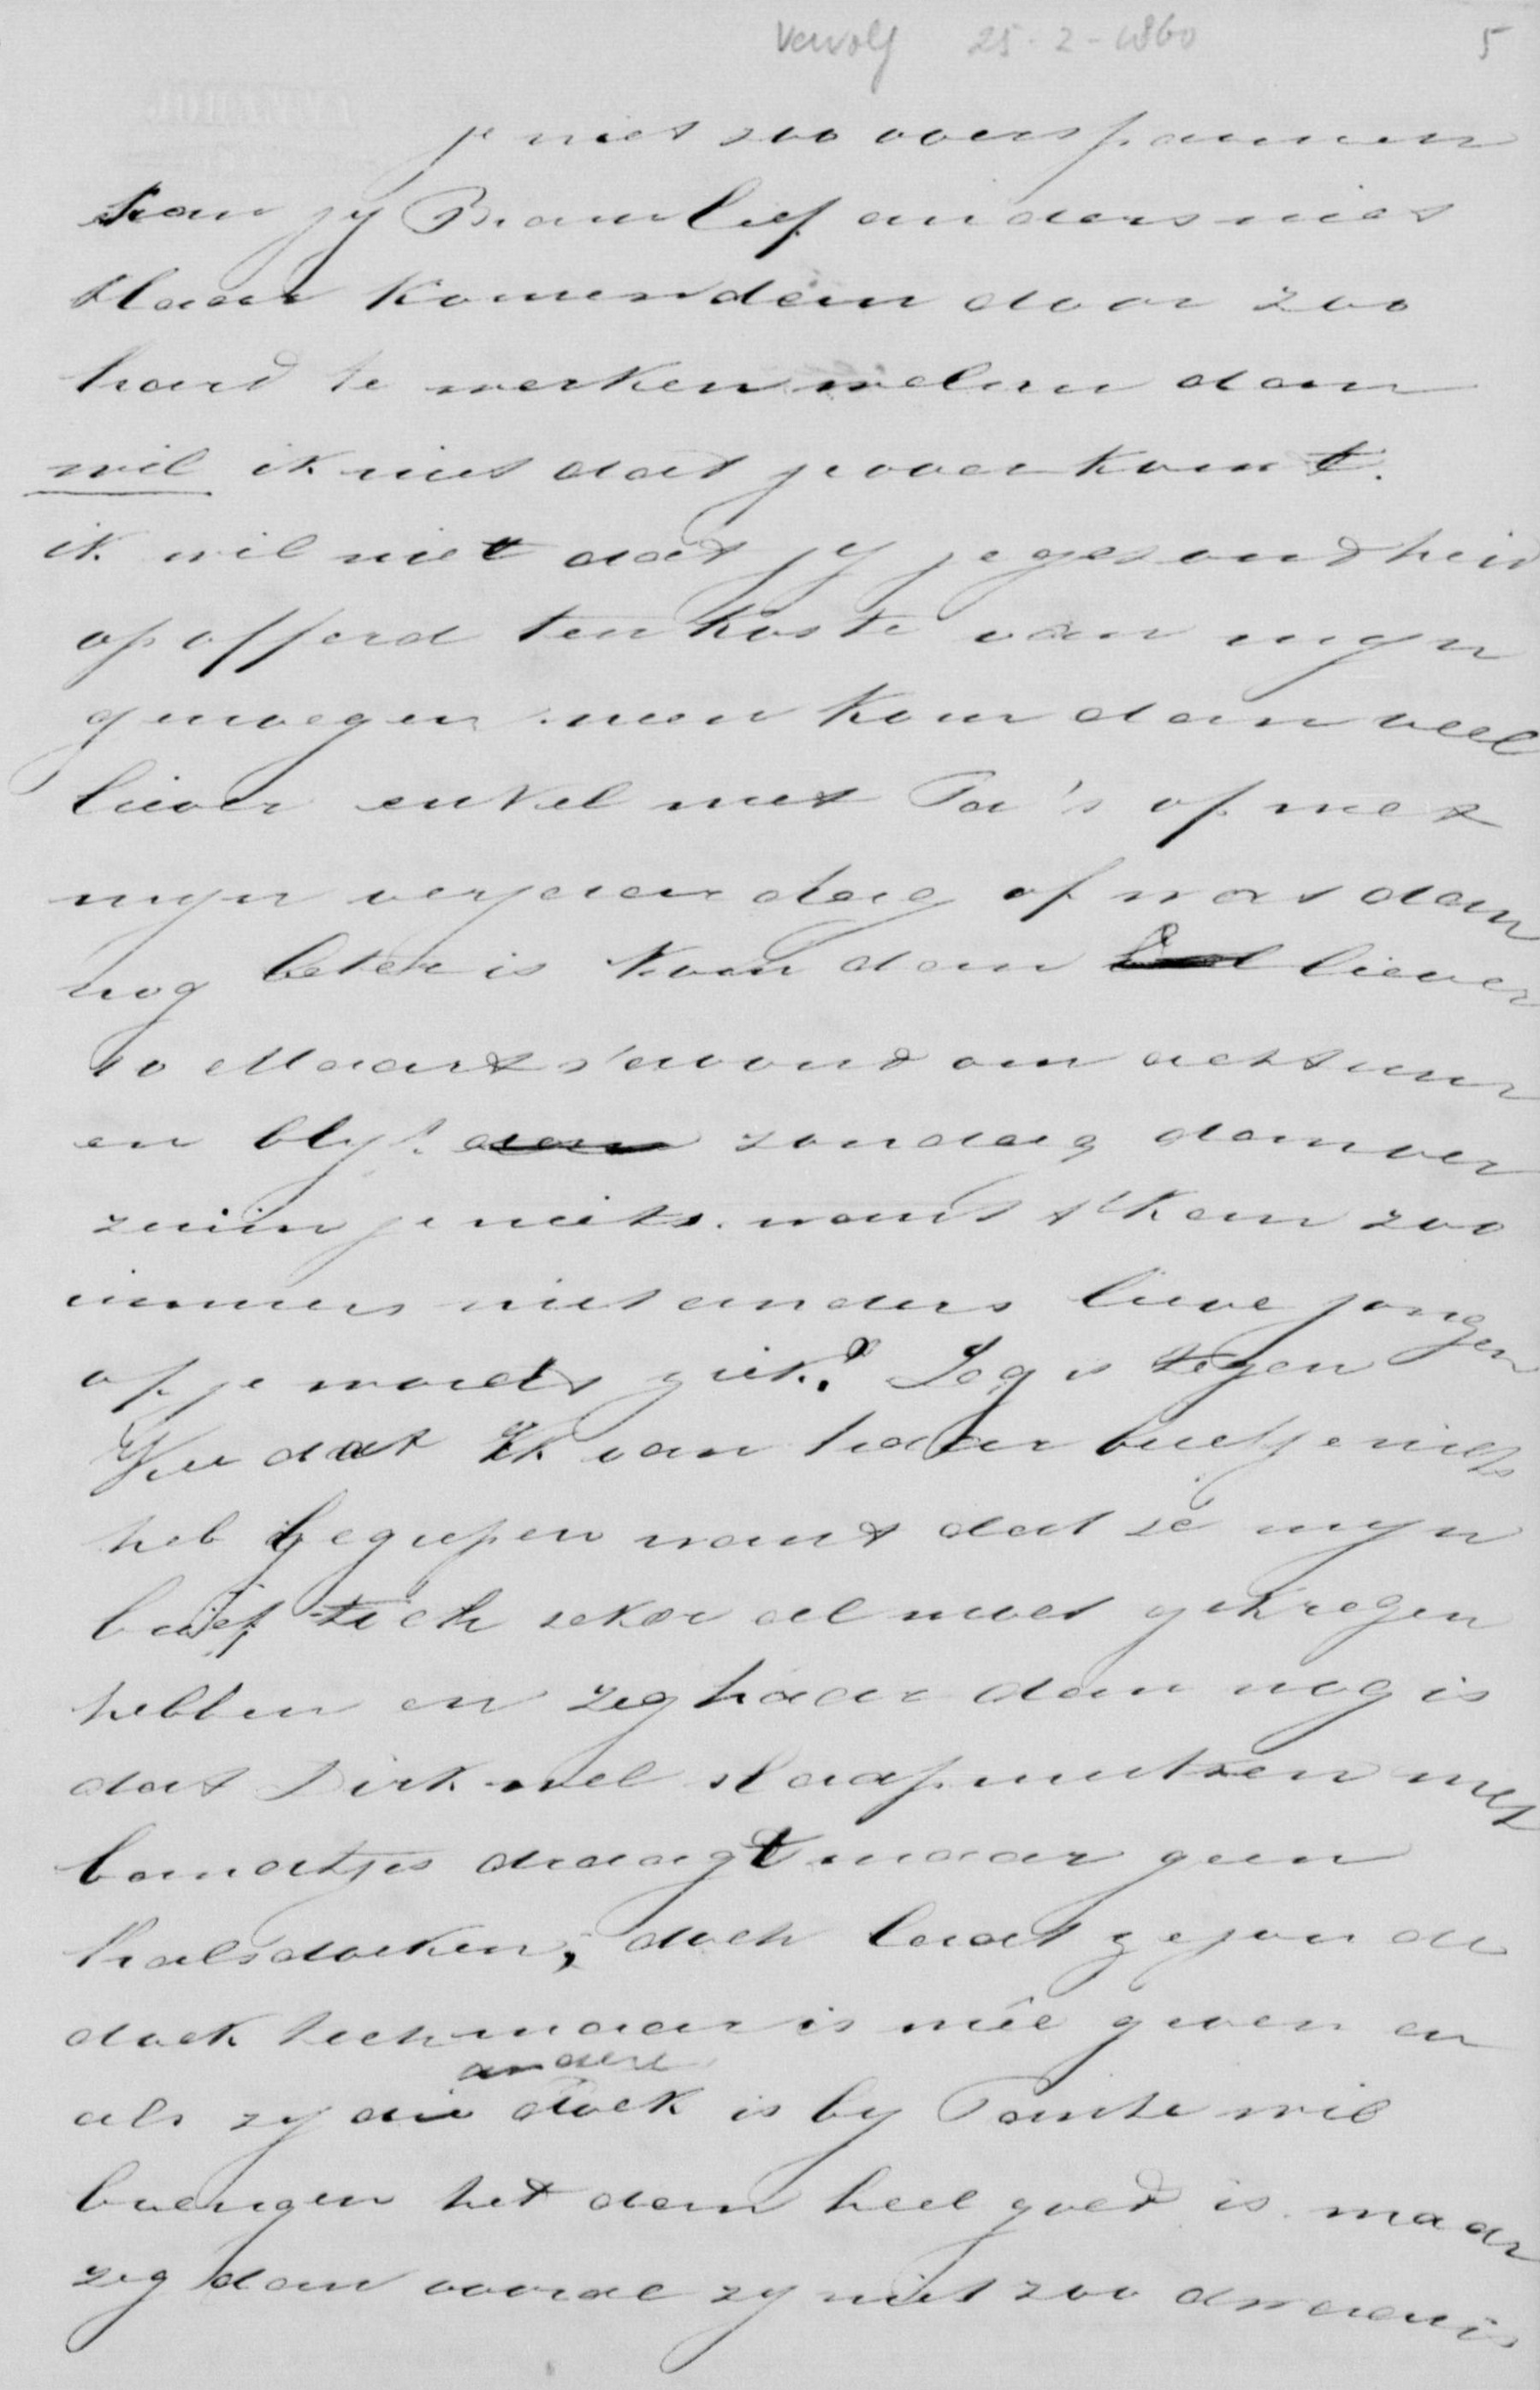 Vervolg 25-2-1860 5
je niet zoo overspannen
kan jy Bram lief anders niet
klaar komen dan door zoo
hard te werken welnu dan
wil ik niet dat je overkomt.
ik wil niet dat jy je gezondheid
opofferd ten koste van myn
genoegen neen kom dan veel
liever enkel met Pa's of met
myn verjaardag of wat dan
nog beter is kom dan liever
10 Maart s'avond om acht uur
en blyf zondag dan ver
zuim je niets. want 't kan zoo
immers niet anders lieve jongen
of je wordt ziek? Zeg is tegen
dat ik van haar briefje niets
heb begrepen want dat ze myn
brief toch zeker al moet gekregen
hebben en zeg haar dan nog is
dat Dirk wel slaapmutsen met
bandtjes draagt maar geen
halsdoeken; doch laat ze jou de
doek toch maar is meê geven en
als zy die andere doek is by Tante wil
brengen het dan heel goed is. maar
zeg dan vooral zy niet zoo dwaas is